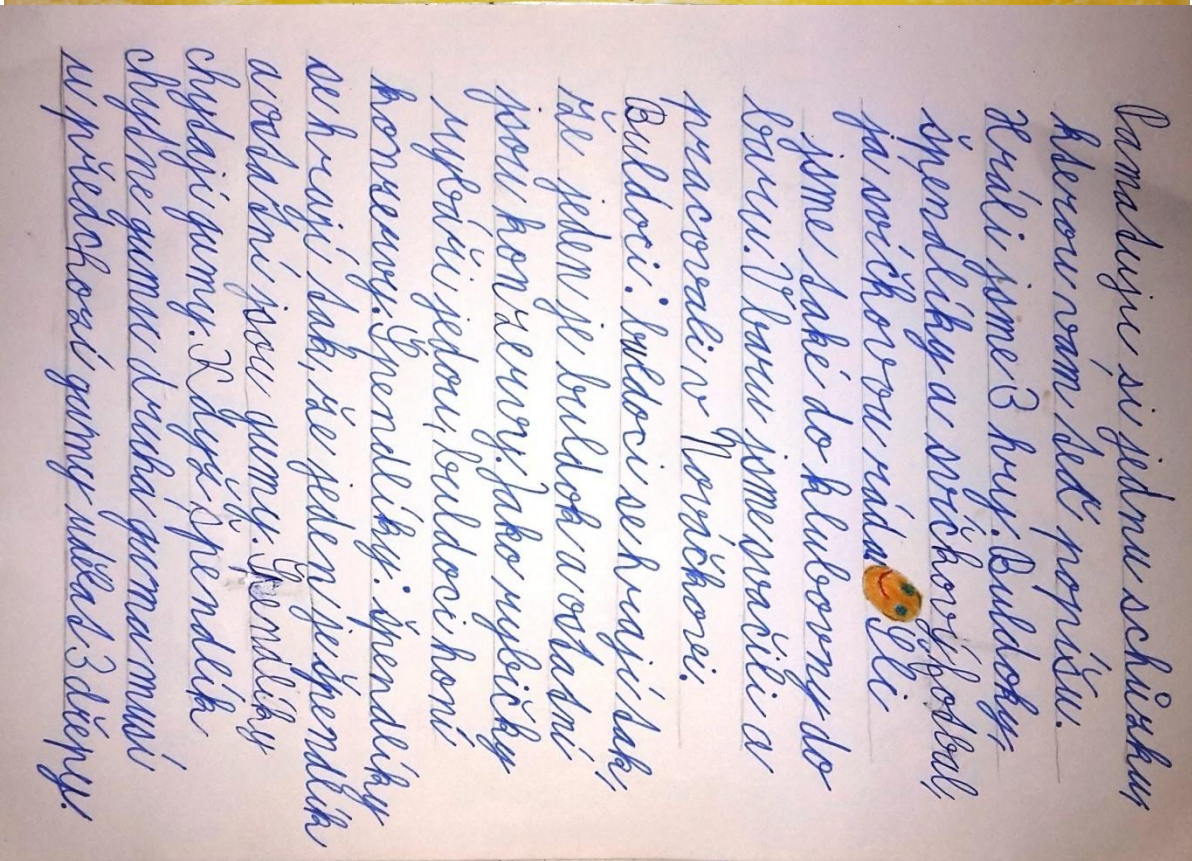 Pamatuju si jednu schůzku,
kterou vám teď popíšu.
Hráli jsme 3 hry. Buldoky,
špendlíky a svíčkový fotbal,
ja svíčkovou ráda Šli
jsme také do klubovny do
baru. V baru jsme svačili a
pracovali v Nováčkovi.
Buldoci: buldoci se hrají tak,
že jeden je buldok a ostatní
jsou konzervy. Jako rybičky
rybáři jedou, buldoci honí
konzervy. Špendlíky: špendlíky
se hrají tak, že jeden je špendlík
a ostatní jsou gumy. Špendlíky
chytají gumy. Když špendlík
chytne gumu druhá guma musí
u předchozí gumy udělat 3 dřepy.